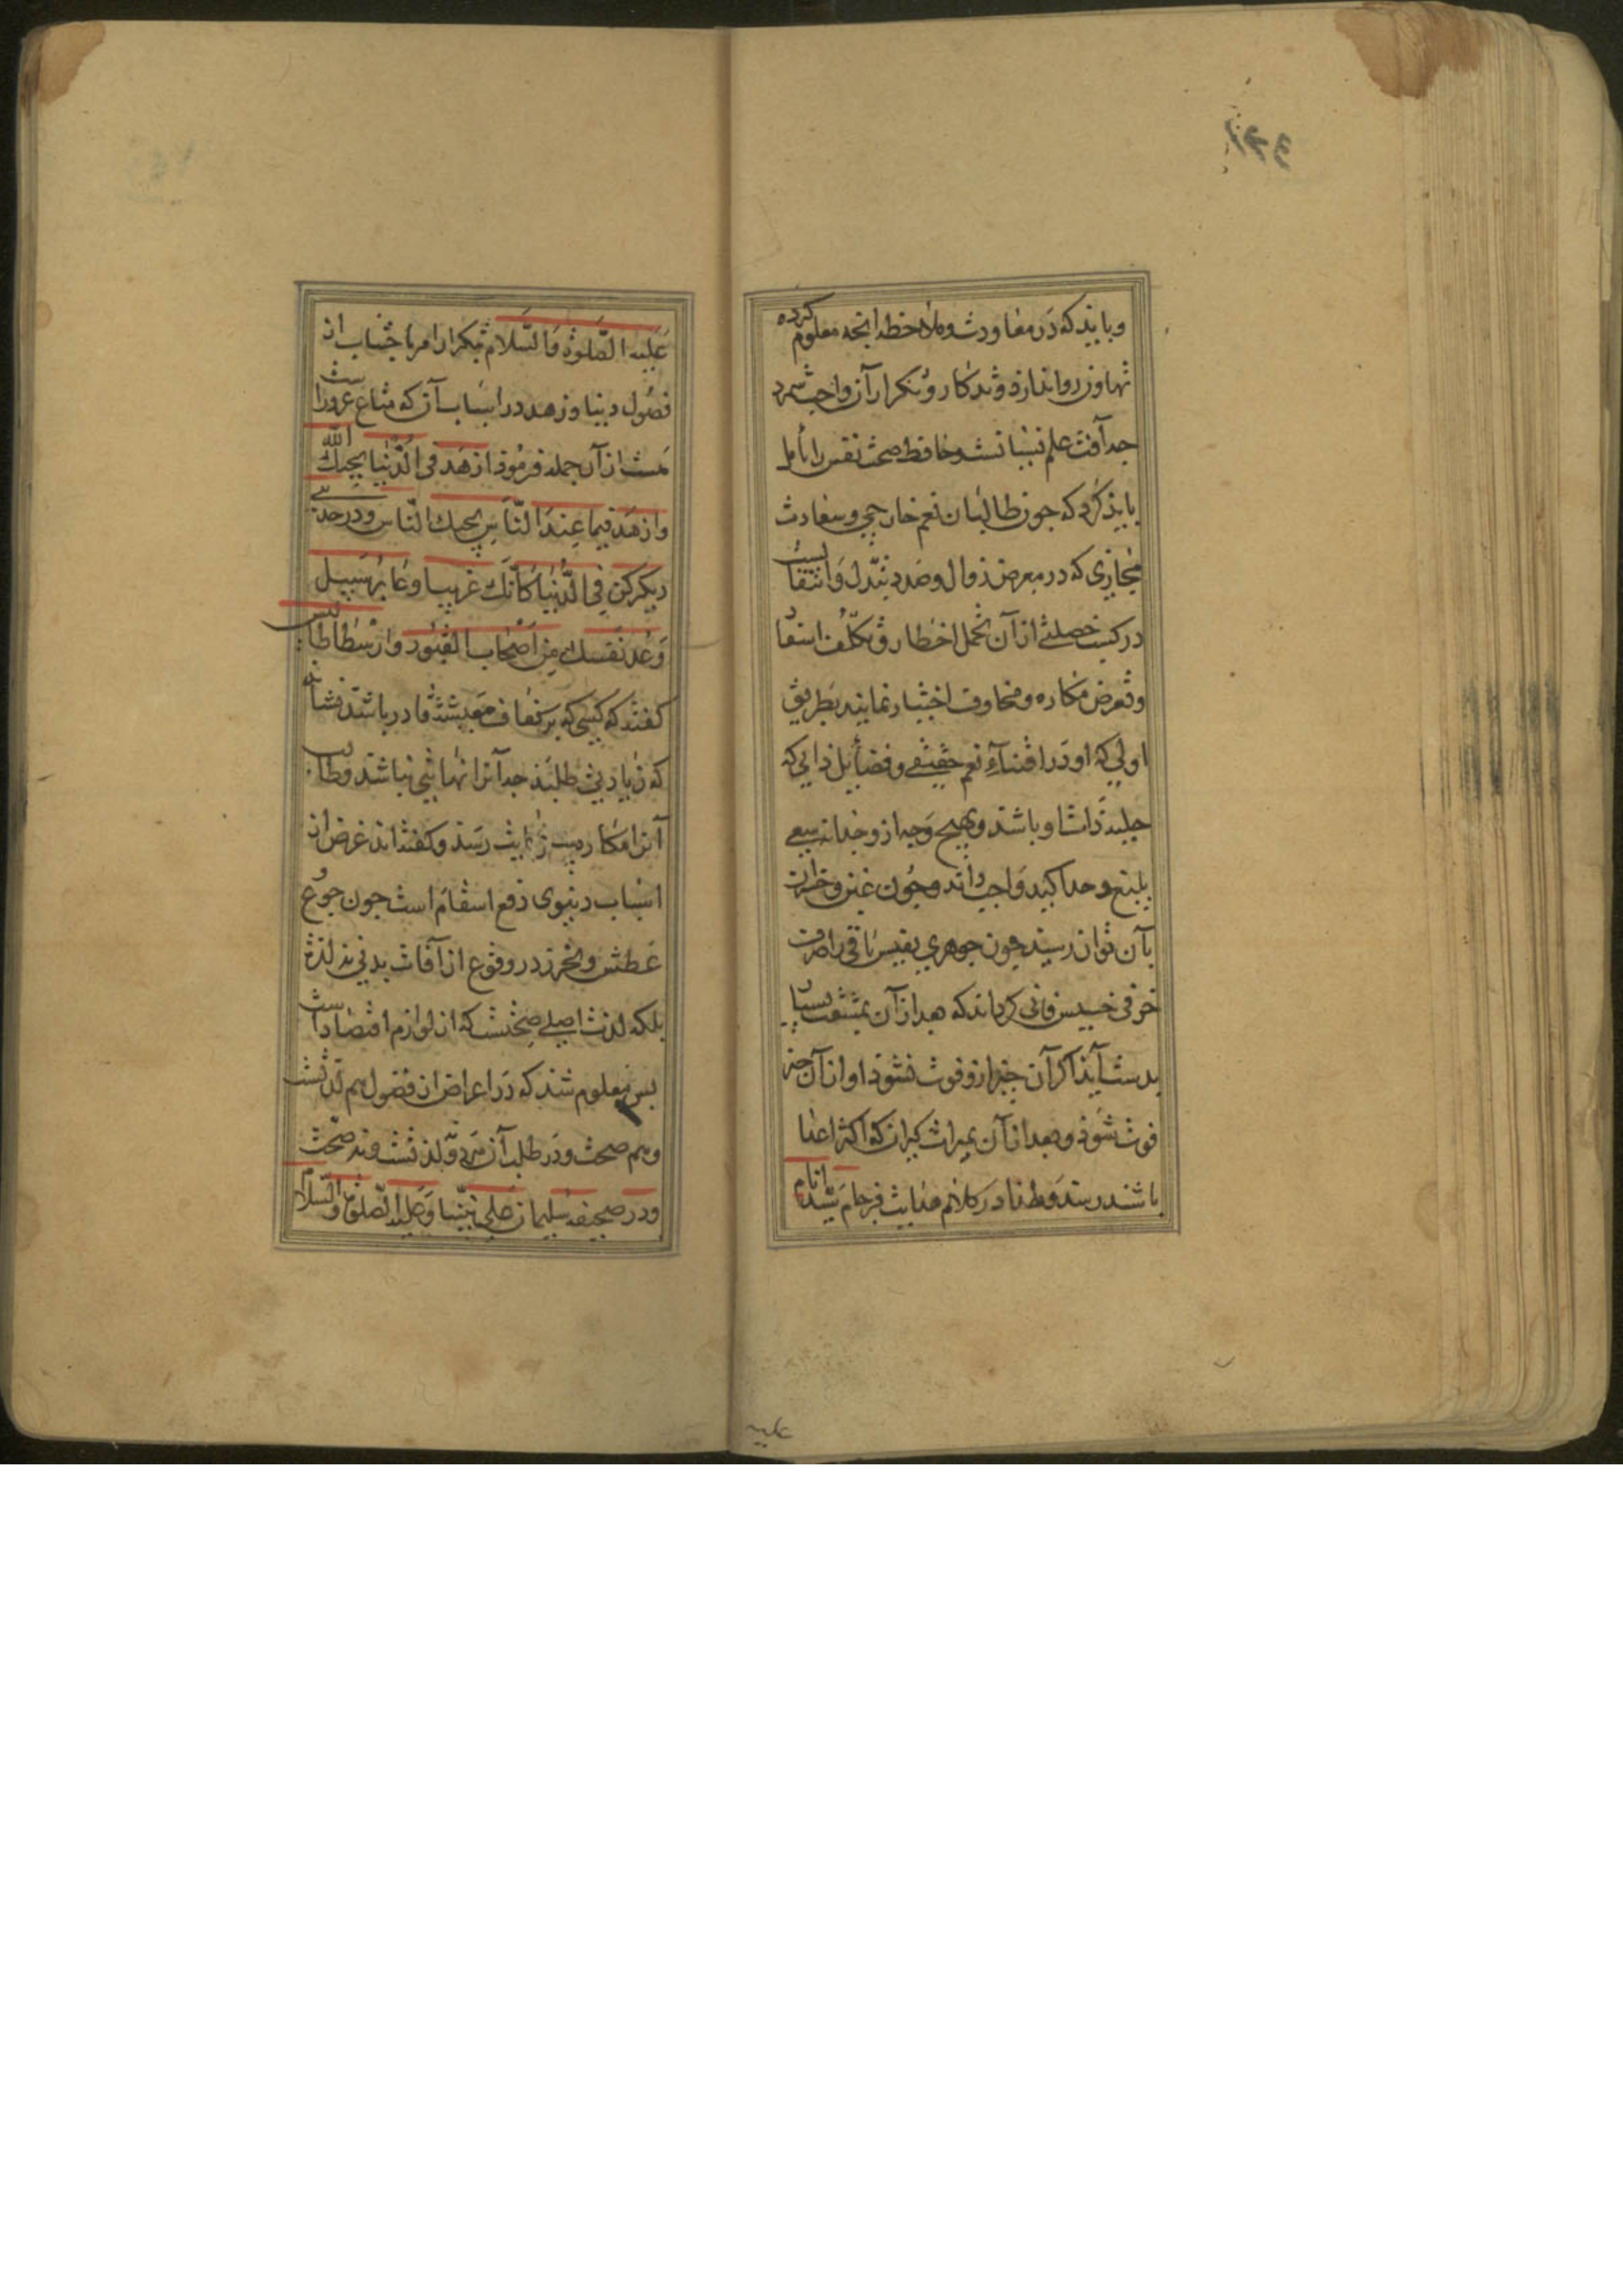 ۲۳۴
و بایذ که در معاودت و ملاحظه انچه معلوم کرده
تهاون روا ندارذ و تذکار و تکرار آن واجب شمرد
چه آفت علم نسیانست و حافظ صحت نفس را تأمل
بایذ کرد که چون طالبان نعم خارجی و سعادت
مجازی که در معرض زوال و صدد تبدل و انتقالست
در کسب خصلتی از آن تحمل اخطار و تکلف اسفار
و تعرض مکاره و مخاوف اختیار نمایند بطریق
اولی که او در اقتناء نعم حقیقی و فضایل ذاتی که
حلیه ذات او باشد و بهیچ وجه از و جدا نه سعی
بلیغ و جد اکید واجب داند و چون غبن و خسران
بآن توان رسید چون جوهری نفیس باقی را صرف
خزفی خسیس فانی کرداند که بعد از آن بمشقت بسیار
بدست آید اکر آن چیز ازو فوت نشوذ او از آن چیز
فوت شوذ و بعد از آن بمیراث کیران که اکثر اعدا
باشند رسد و طنا در کلام هدایت فرجام سید انام
علیه
علیه الصلوة والسلام بتکرار امر باجتناب از
فضول دنیا و زهد در اسباب آن که متاع غرورست
هست از آن جمله فرموذ ازهد فی الدنیا یحبک الله
وازهد فیما عند الناس یحبک الناس و در حدیثی
دیکر کن فی الدنیا کانک غریب او عابر سبیل
وعد نفسک من اصحاب القبور و ارسطاطالیس
کفته که کسی که بر کفاف معیشت قادر باشد نشاید
که زیادتی طلبد چه آنرا نهایتی نباشد و طالب
آنرا مکاره بی نهایت رسد و کفته‌اند غرض از
اسباب دنیوی دفع اسقام است چون جوع و
عطش و تحرز در وقوع از آفات بدنی نه لذة
بلکه لذت اصلی صحتست که از لوازم اقتصادست
بس معلوم شد که در اعراض از فضول هم لذتست
و هم صحت و در طلب آن نه لذتست و نه صحت
و در صحیفه سلیمان علی نبینا وعلیه الصلوة والسلام